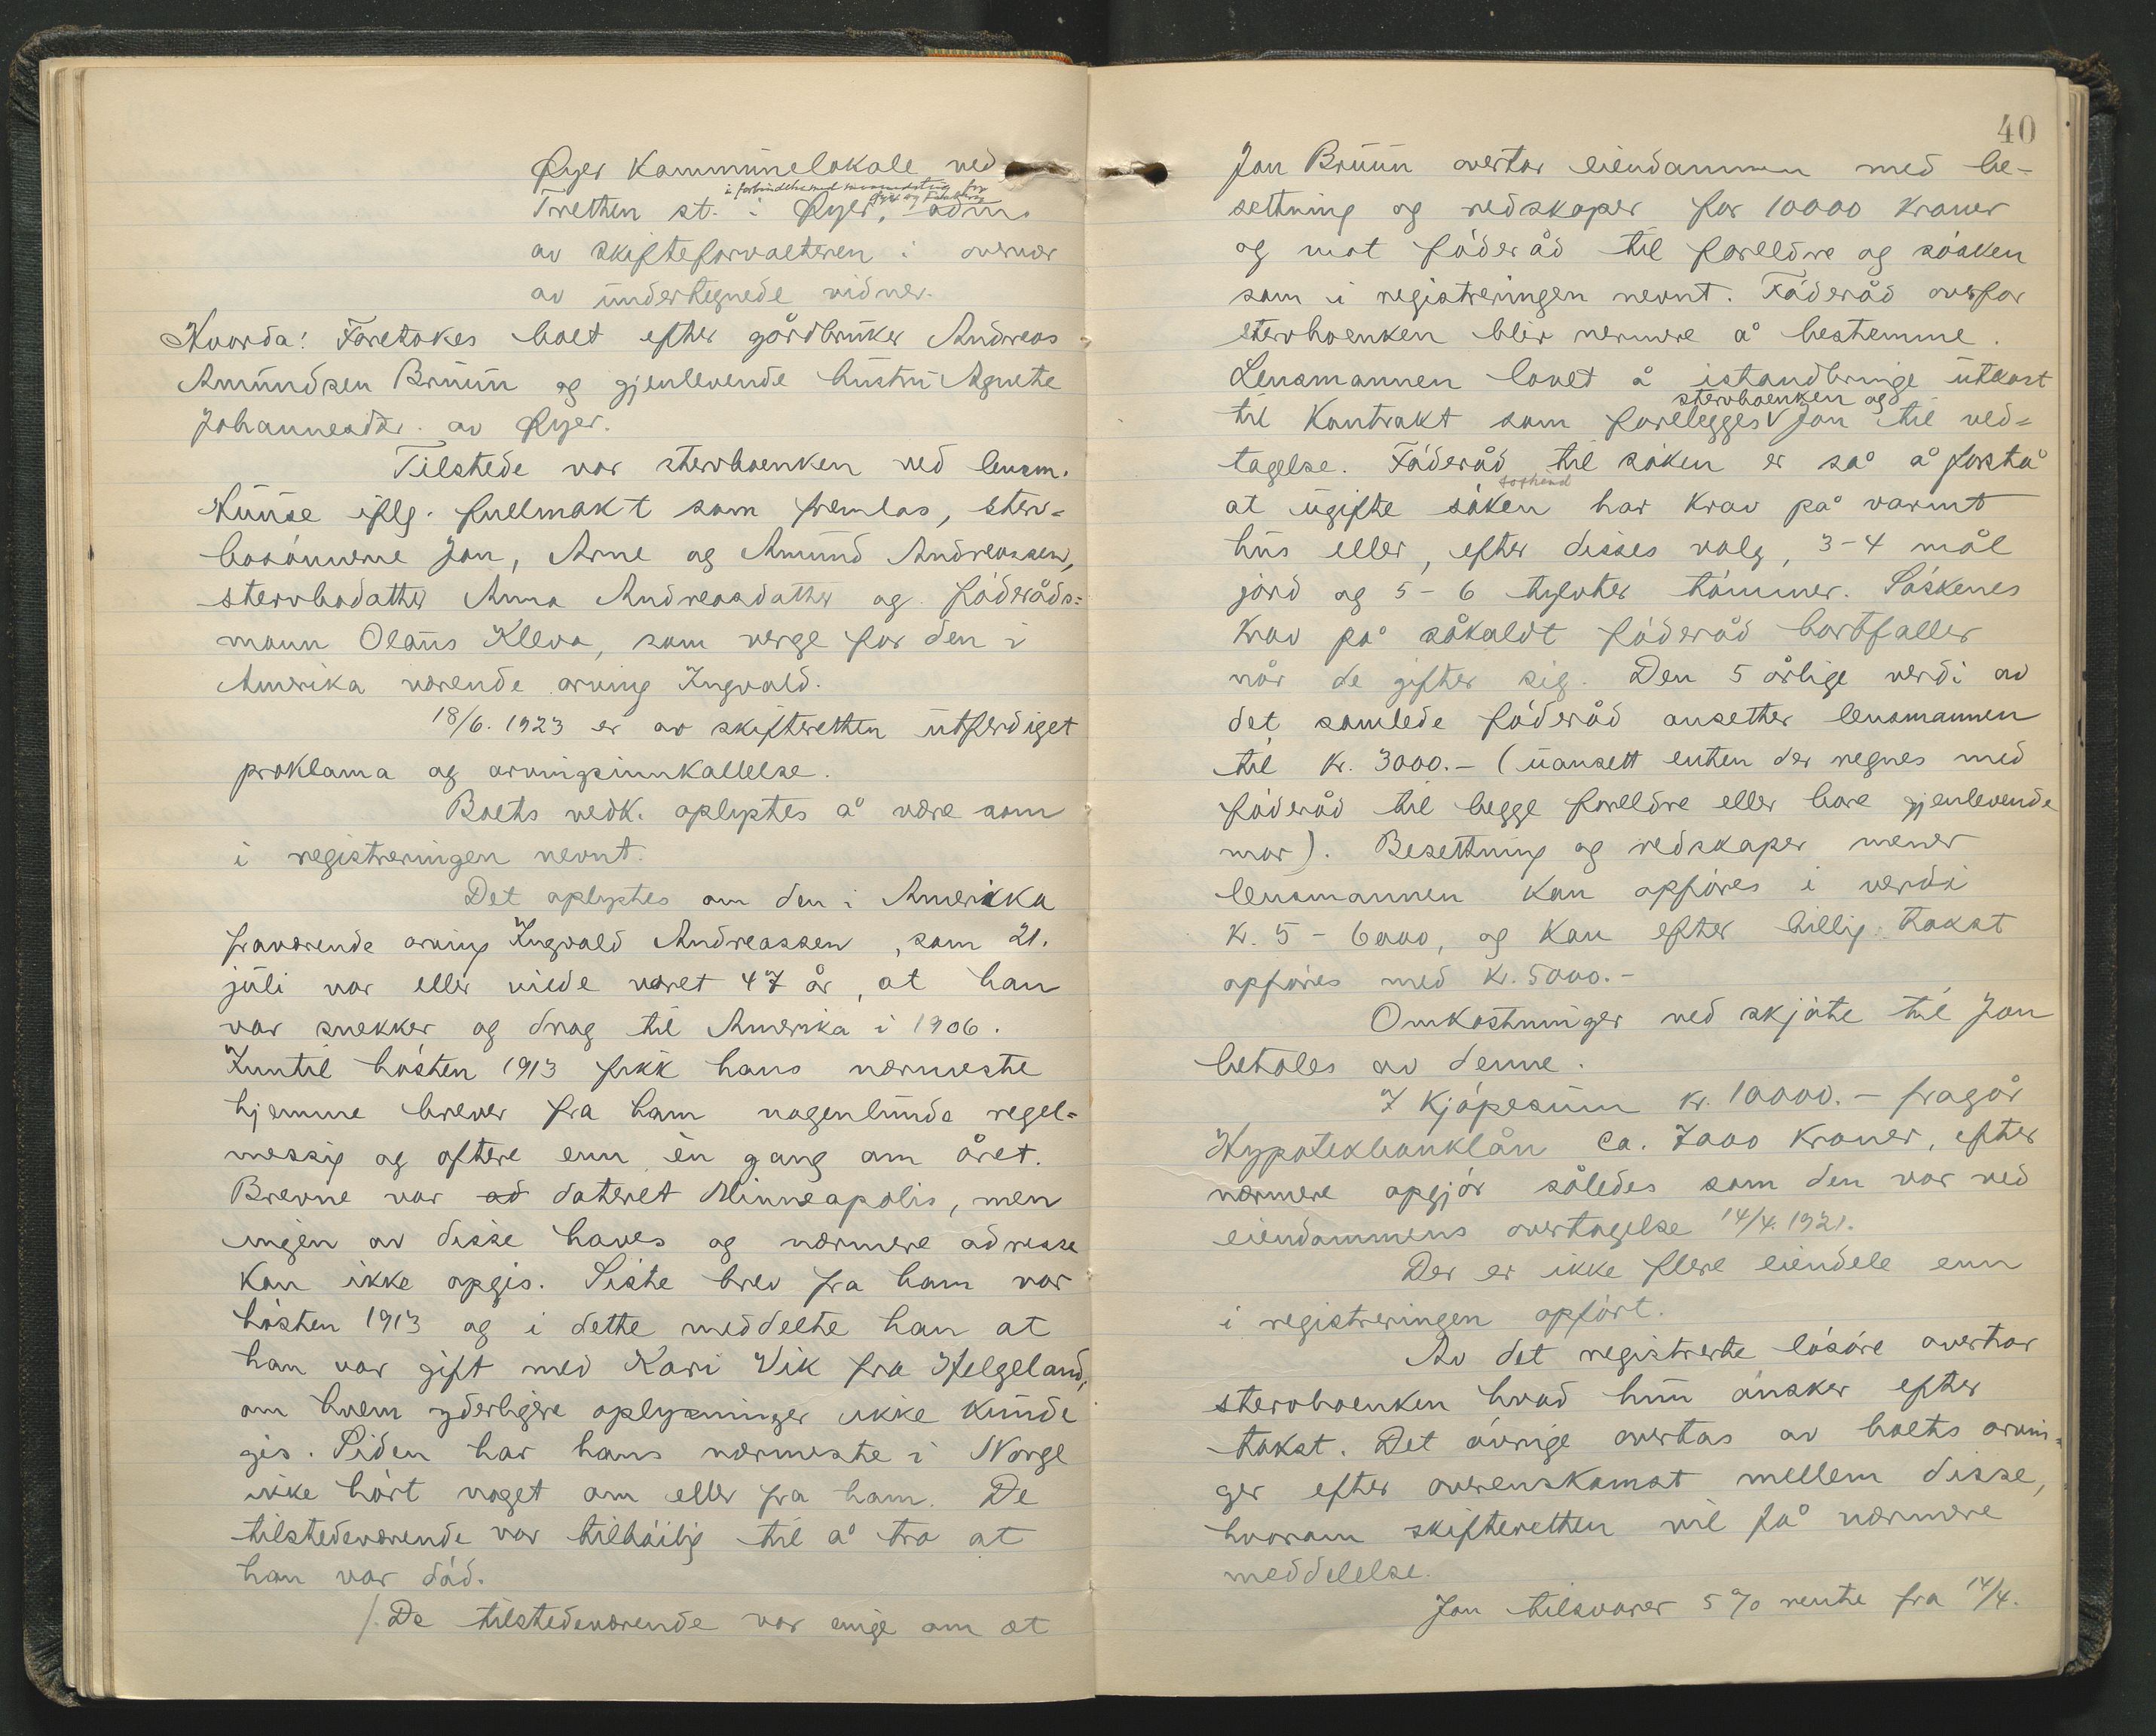 Øyer Kommunelokale ved
i forbindelse med
Tretten st. i Øyer, adm.
av skifteforvalteren i overvær
av undertegnede vidner.
Hvorda: Foretokes boet efter gårdbruker Andreas
Amundsen Bruun og gjenlevende hustru Agnete
Johannesdtr. av Øyer.
Tilstede var stervboenken ved lensm.
Huuse iflg. fullmakt som fremlas, sterv-
bosönnerne Jon, Arne og Amund Andreassen,
stervbodatter Anna Andreasdatter og föderåds-
mann Olaus Kleva, som verge for den i
Amerika værende arving Ingvald.
18/6. 1923 er av skifteretten utferdiget
proklama og arvingsinnkallelse.
Boets vedk. oplystes å være som
i registreringen nevnt.
Det oplystes om den i Amerika
fraværende arving Ingvald Andreassen, som 21.
juli var eller vilde været 47 år, at han
var snekker og drog til Amerika i 1906.
Inntil hösten 1913 fikk hans nærmeste
hjemme brever fra ham nogenlunde regel-
messig og oftere enn én gang om året.
Brevne var ad dateret Minneapolis, men
ingen av disse haves og nærmere adresse
kan ikke opgis. Siste brev fra ham var
hösten 1913 og i dette meddelte han at
han var gift med Kari Vik fra Helgeland,
om hvem yderligere oplysninger ikke kunde
gis. Siden har hans nærmeste i Norge
ikke hört noget om eller fra ham. De
tilstedeværende var tilböilig til å tro at
han var död.
/. De tilstedeværende var enige om at
40
Jon Bruun overtar eiendommen med be-
settning og redskaper for 10000 kroner
og mot föderåd til foreldre og sösken
som i registreringen nevnt. Föderåd overfor
stervboenken blir nermere å bestemme.
Lensmannen lovet å istandbringe utkast
stervboenken og
til Kontrakt som forelegges V Jon til ved-
tagelse. Föderåd til söken er så å forstå
at ugifte söken har krav på varmt
hus eller, efter disses valg, 3-4 mål
jord og 5-6 tylvter tömmer. Söskenes
krav på såkaldt föderåd bortfaller
når de gifter sig. Den 5 årlige verdi av
det samlede föderåd ansetter lensmannen
til kr. 3000.- (uansett enten der regnes med
föderåd til begge foreldre eller bare gjenlevende
mor). Besettning og redskaper mener
lensmannen kan opföres i verdi
kr. 5-6000, og kan efter billig takst
opföres med kr. 5000.-
Omkostninger ved skjöte til Jon
betales av denne.
I kjöpesum kr. 10000.- fragår
Hypotekbanklån ca. 7000 kroner, efter
nærmere opgjör således som den var ved
eiendommens overtagelse 14/4. 1921.
Der er ikke flere eiendele enn
i registreringen opfört.
Av det registrerte lösöre overtar
stervboenken hvad hun önsker efter
takst. Det övrige overtas av boets arvin-
ger efter overenskomst mellem disse,
hvorom skifteretten vil få nærmere
meddelelse.
Jon tilsvarer 5% rente fra 14/4.